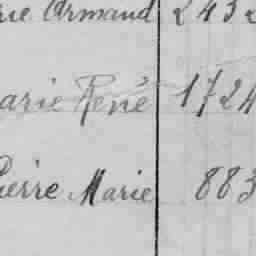 rie Armand 2432
arie René 1724
Pierre Marie 883